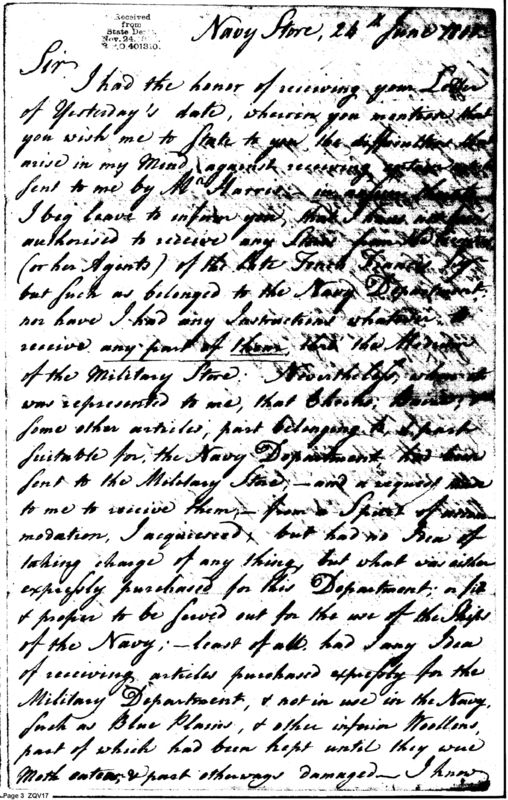 Received
from
State Dept.
Nov. 24.
Navy Store, 24th June
Sir
I had the honor of receiving your Letter
of Yesterday's date, wherein you mention that
you wish me to State to you the difficulties that
arise in my Mind against receiving
sent to me by Mr. Harris,
I beg leave to inform you, that I have not
authorised to receive any Stores from the
(or her Agents) of the late Tench Francis
but such as belonged to the Navy Department
nor have I had any Instructions whatever to
receive any part of them, thro the Medium
of the Military Store. Nevertheless, when it
was represented to me, that Checks,
some other articles, part belonging to, & part
suitable for, the Navy Department had been
sent to the Military Store, – and a request
to me to receive them, – from a Spirit of accom
modation, I acquiesced; but had no Idea of
taking charge of any thing but what was either
expressly purchased for this Department, or fit
& proper to be served out for the use of the Ships
of the Navy; – least of all had I any Idea
of receiving articles purchased expressly for the
Military Department, & not in use in the Navy,
such as Blue Plains, & other inferior Woollens,
part of which had been kept until they were
Moth eaten, & part otherways damaged – I know
Page 3 ZQV17